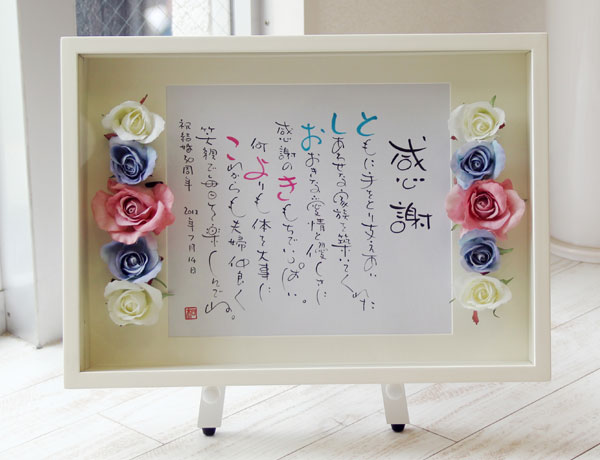 感謝
ともに手をとり支えあい
しあわせな家族を築いてくれた
おおきな愛情と優しさに
感謝のきもちでいっぱい。
何よりも体を大事に
これからも夫婦仲良く
笑顔で毎日を楽しんでね。
祝結婚30周年 2012年7月14日